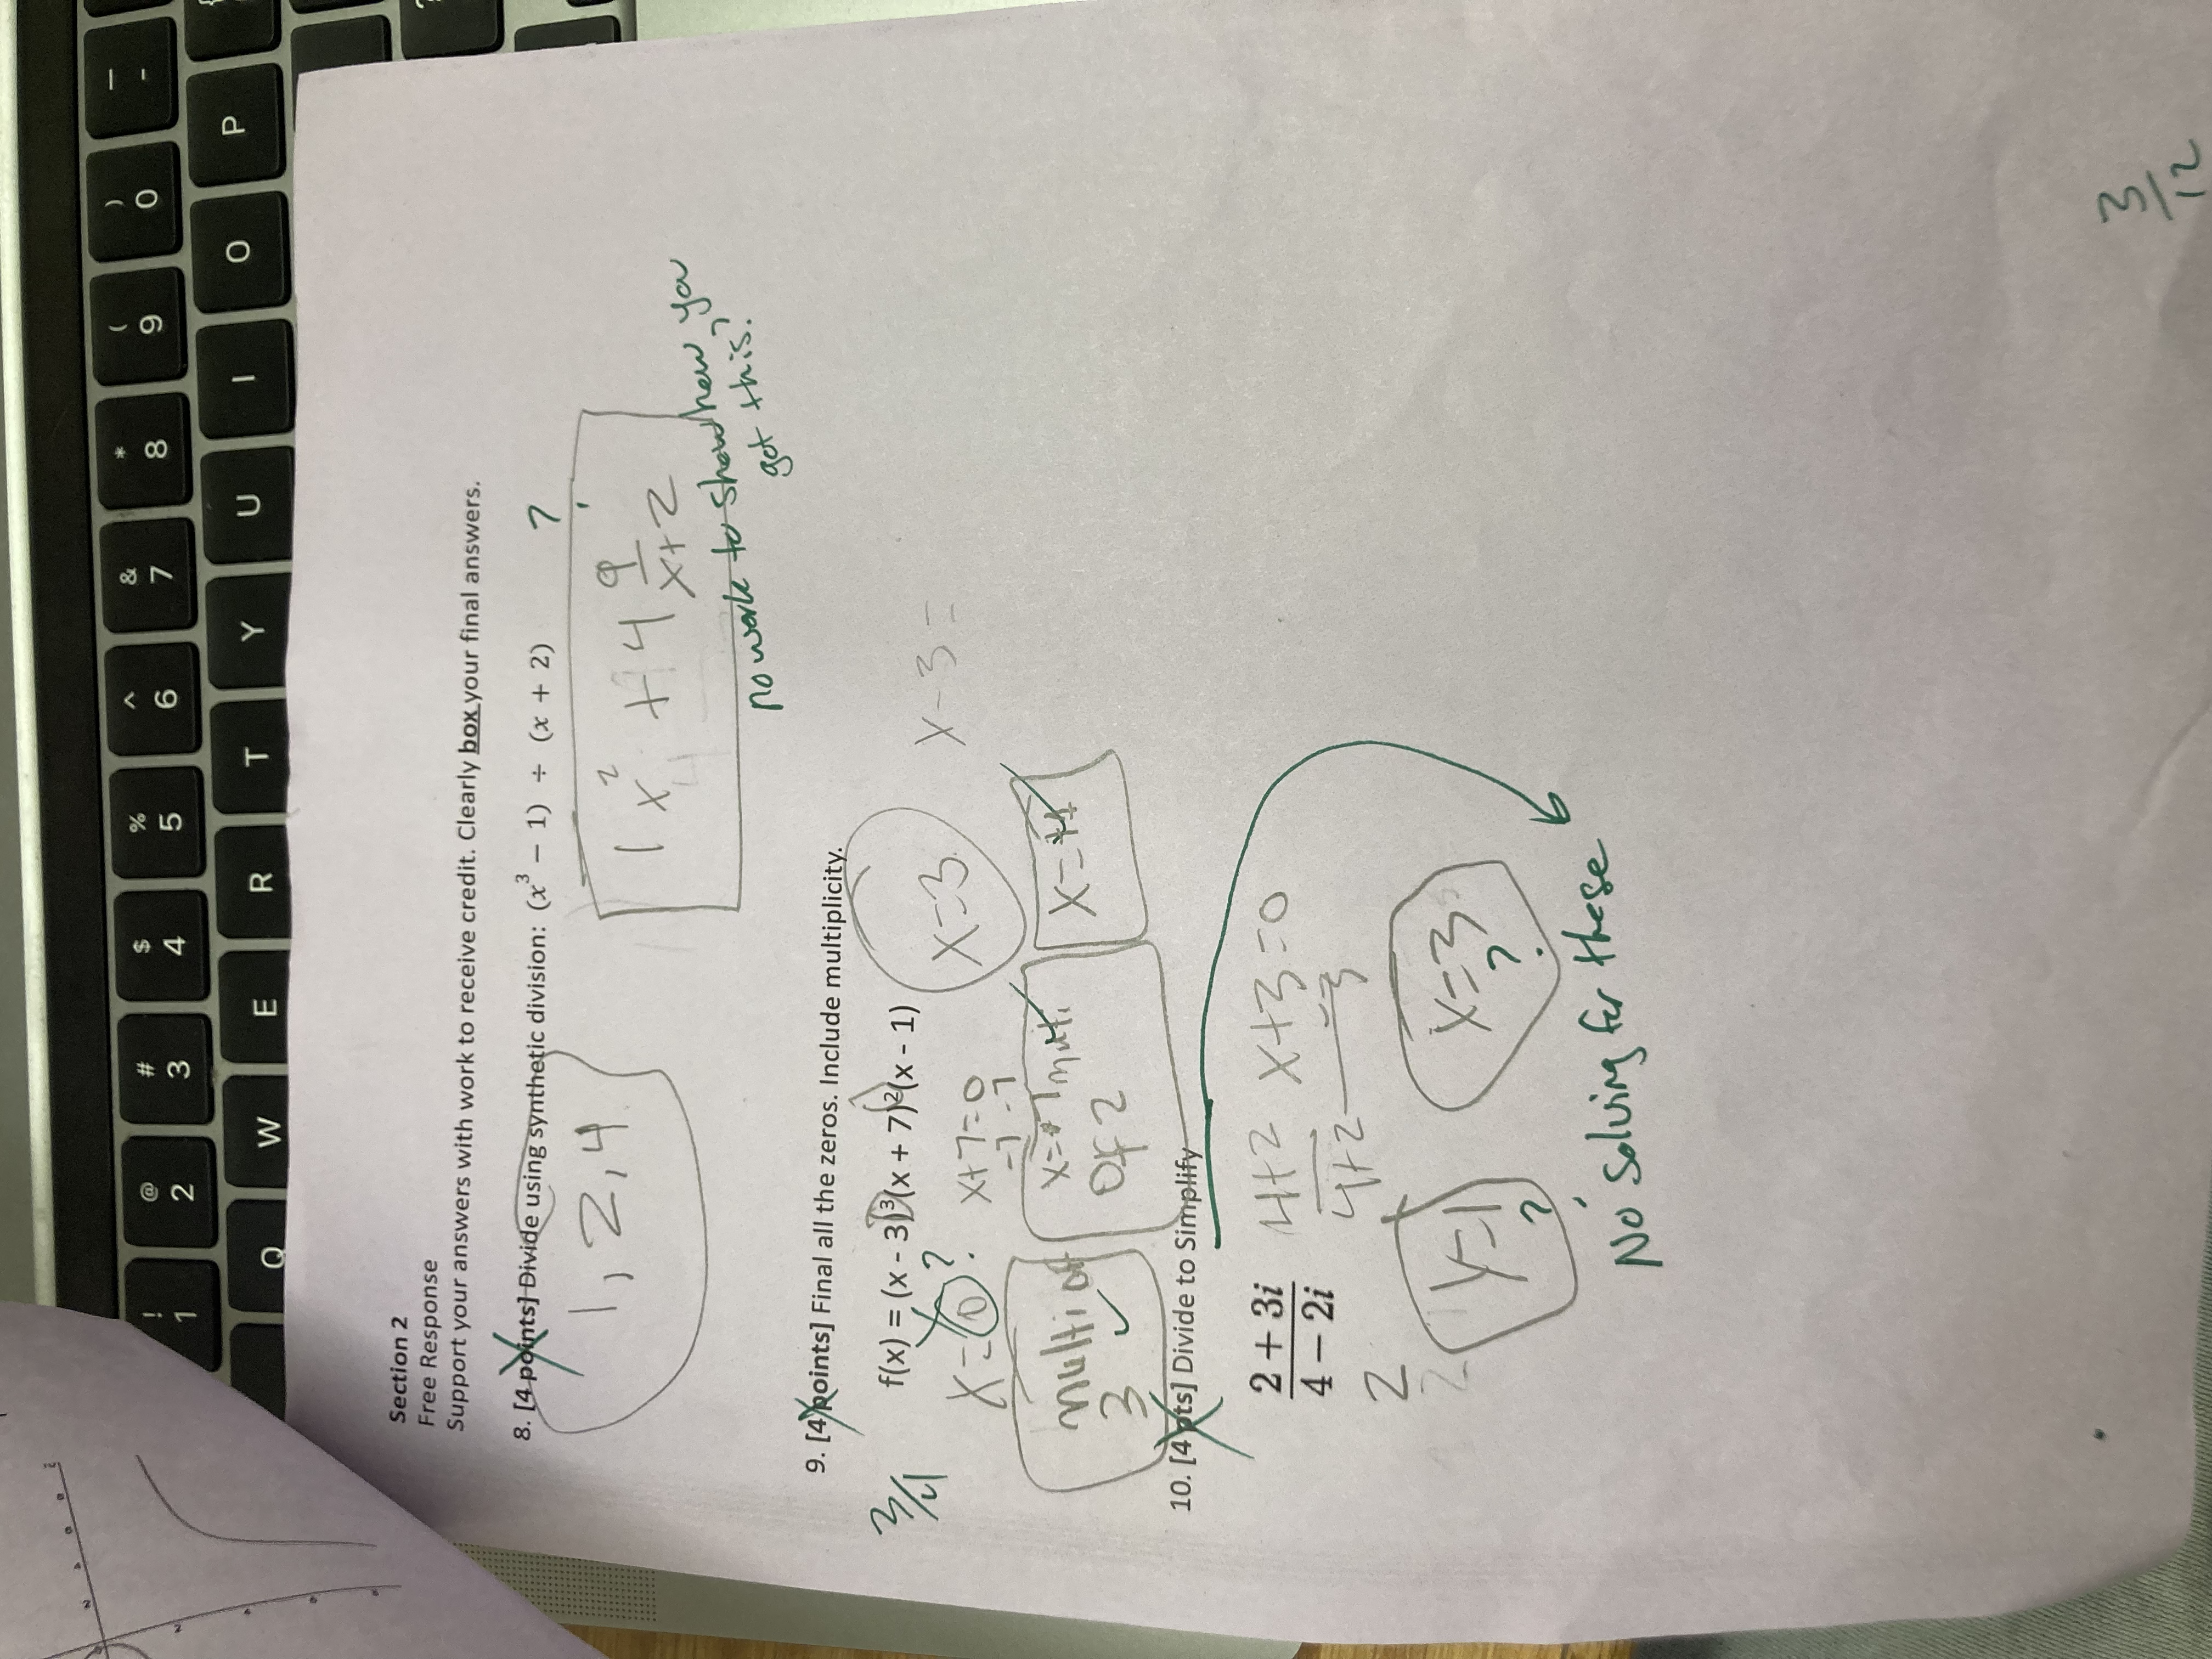 Section 2
Free Response
Support your answers with work to receive credit. Clearly box your final answers.
8. [4 points] Divide using synthetic division: (x³ − 1) ÷ (x + 2)
?
1, 2, 4
1x² + 4 9/x+2
no work to show how you
got this.
9. [4 points] Final all the zeros. Include multiplicity.
3/4
f(x) = (x - 3)³(x + 7)²(x - 1)
x=3
x-3=
x=0 ?
x+7=0
-7 -7
multi of
3
x=-7 multi
Of 2
10. [4 pts] Divide to Simplify
2 + 3i
4 − 2i
4+2
4+2
x+3=0
-3 -3
2
y=1
?
x=3
?
No solving for these
3/12
! 1
@ 2
# 3
$ 4
% 5
^ 6
& 7
* 8
( 9
) 0
Q W E R T Y U I O P